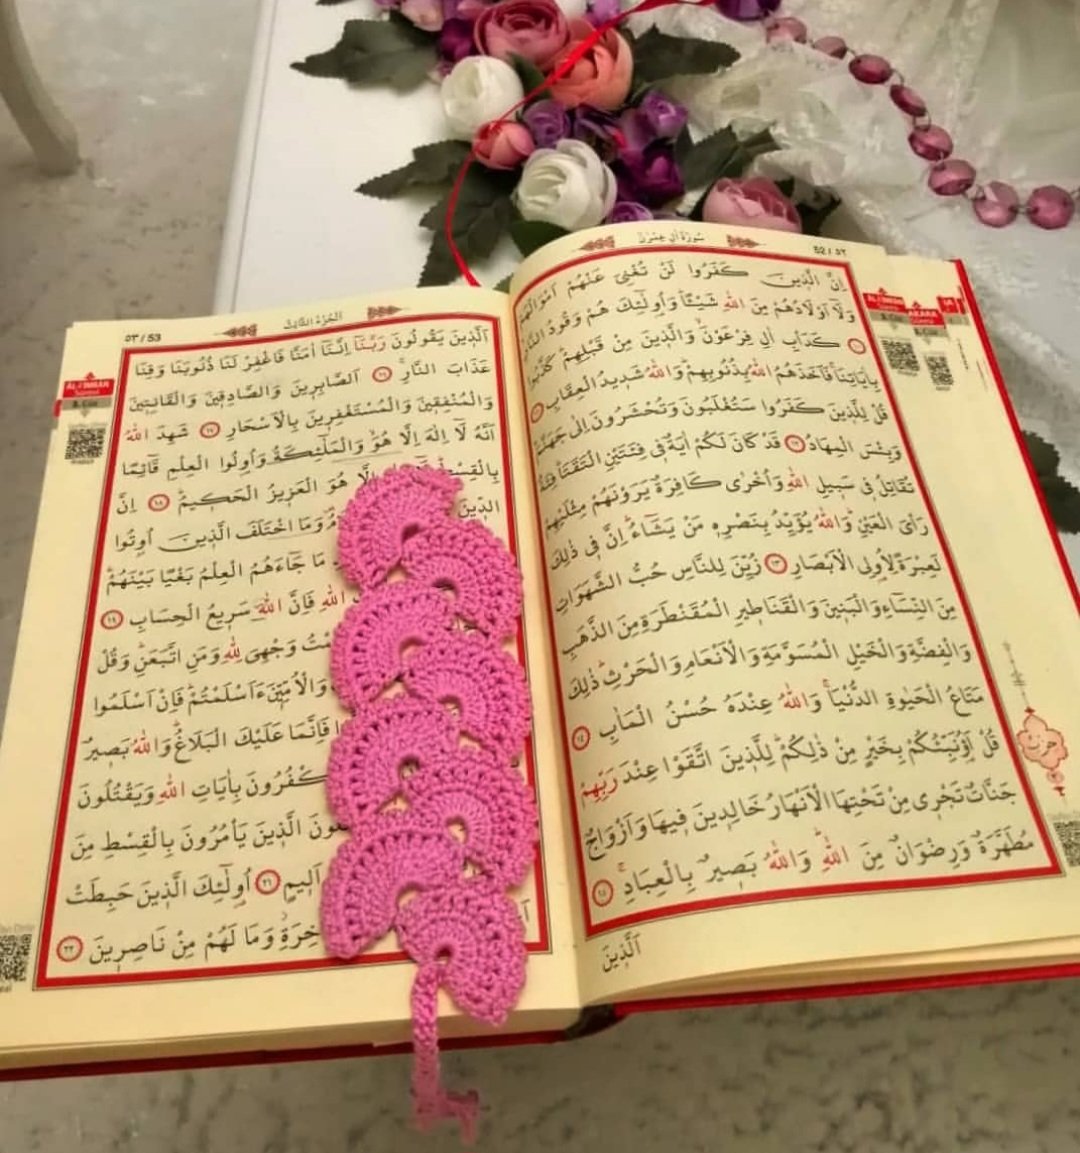 سُورَةُ اٰلِ عِمْرٰنَ
52 / ٥٢
اِنَّ الَّذ۪ينَ كَفَرُوا لَنْ تُغْنِيَ عَنْهُمْ اَمْوَالُهُمْ
وَلَٓا اَوْلَادُهُمْ مِنَ اللّٰهِ شَيْـًٔاۜ وَاُو۬لٰٓئِكَ هُمْ وَقُودُ النَّارِۙ
١٠ كَدَأْبِ اٰلِ فِرْعَوْنَۙ وَالَّذ۪ينَ مِنْ قَبْلِهِمْۜ كَذَّبُوا
بِاٰيَاتِنَاۚ فَاَخَذَهُمُ اللّٰهُ بِذُنُوبِهِمْۜ وَاللّٰهُ شَد۪يدُ الْعِقَابِ ١١
قُلْ لِلَّذ۪ينَ كَفَرُوا سَتُغْلَبُونَ وَتُحْشَرُونَ اِلٰى جَهَنَّمَۜ
وَبِئْسَ الْمِهَادُ ١٢ قَدْ كَانَ لَكُمْ اٰيَةٌ ف۪ي فِئَتَيْنِ الْتَقَتَاۜ فِئَةٌ
تُقَاتِلُ ف۪ي سَب۪يلِ اللّٰهِ وَاُخْرٰى كَافِرَةٌ يَرَوْنَهُمْ مِثْلَيْهِمْ
رَأْيَ الْعَيْنِۜ وَاللّٰهُ يُؤَيِّدُ بِنَصْرِه۪ مَنْ يَشَٓاءُۜ اِنَّ ف۪ي ذٰلِكَ
لَعِبْرَةً لِاُو۬لِي الْاَبْصَارِ ١٣ زُيِّنَ لِلنَّاسِ حُبُّ الشَّهَوَاتِ
مِنَ النِّسَٓاءِ وَالْبَن۪ينَ وَالْقَنَاط۪يرِ الْمُقَنْطَرَةِ مِنَ الذَّهَبِ
وَالْفِضَّةِ وَالْخَيْلِ الْمُسَوَّمَةِ وَالْاَنْعَامِ وَالْحَرْثِۜ ذٰلِكَ
مَتَاعُ الْحَيٰوةِ الدُّنْيَاۚ وَاللّٰهُ عِنْدَهُ حُسْنُ الْمَاٰبِ ١٤
قُلْ اَؤُ۬نَبِّئُكُمْ بِخَيْرٍ مِنْ ذٰلِكُمْۜ لِلَّذ۪ينَ اتَّقَوْا عِنْدَ رَبِّهِمْ
جَنَّاتٌ تَجْر۪ي مِنْ تَحْتِهَا الْاَنْهَارُ خَالِد۪ينَ ف۪يهَا وَاَزْوَاجٌ
مُطَهَّرَةٌ وَرِضْوَانٌ مِنَ اللّٰهِۜ وَاللّٰهُ بَص۪يرٌ بِالْعِبَادِۚ ١٥
اَلَّذ۪ينَ
حزب
اَلْجُزْءُ الثَّالِثُ
٥٣ / 53
ÂL-İ İMRÂN
اَلَّذ۪ينَ يَقُولُونَ رَبَّنَٓا اِنَّنَٓا اٰمَنَّا فَاغْفِرْ لَنَا ذُنُوبَنَا وَقِنَا
عَذَابَ النَّارِۚ ١٦ اَلصَّابِر۪ينَ وَالصَّادِق۪ينَ وَالْقَانِت۪ينَ
وَالْمُنْفِق۪ينَ وَالْمُسْتَغْفِر۪ينَ بِالْاَسْحَارِ ١٧ شَهِدَ اللّٰهُ
اَنَّهُ لَٓا اِلٰهَ اِلَّا هُوَۙ وَالْمَلٰٓئِكَةُ وَاُو۬لُوا الْعِلْمِ قَٓائِمًا
بِالْقِسْطِۜ اِلَّا هُوَ الْعَز۪يزُ الْحَك۪يمُۜ ١٨ اِنَّ
الدّ۪ينَ وَمَا اخْتَلَفَ الَّذ۪ينَ اُو۫تُوا
مَا جَٓاءَهُمُ الْعِلْمُ بَغْيًا بَيْنَهُمْۜ
اللّٰهِ فَاِنَّ اللّٰهَ سَر۪يعُ الْحِسَابِ ١٩
وَجْهِيَ لِلّٰهِ وَمَنِ اتَّبَعَنِۜ وَقُلْ
وَالْاُمِّيّ۪نَ ءَاَسْلَمْتُمْۜ فَاِنْ اَسْلَمُوا
فَاِنَّمَا عَلَيْكَ الْبَلَاغُۜ وَاللّٰهُ بَص۪يرٌ
يَكْفُرُونَ بِاٰيَاتِ اللّٰهِ وَيَقْتُلُونَ
الَّذ۪ينَ يَأْمُرُونَ بِالْقِسْطِ مِنَ
اَل۪يمٍ ٢١ اُو۬لٰٓئِكَ الَّذ۪ينَ حَبِطَتْ
وَمَا لَهُمْ مِنْ نَاصِر۪ينَ ٢٢